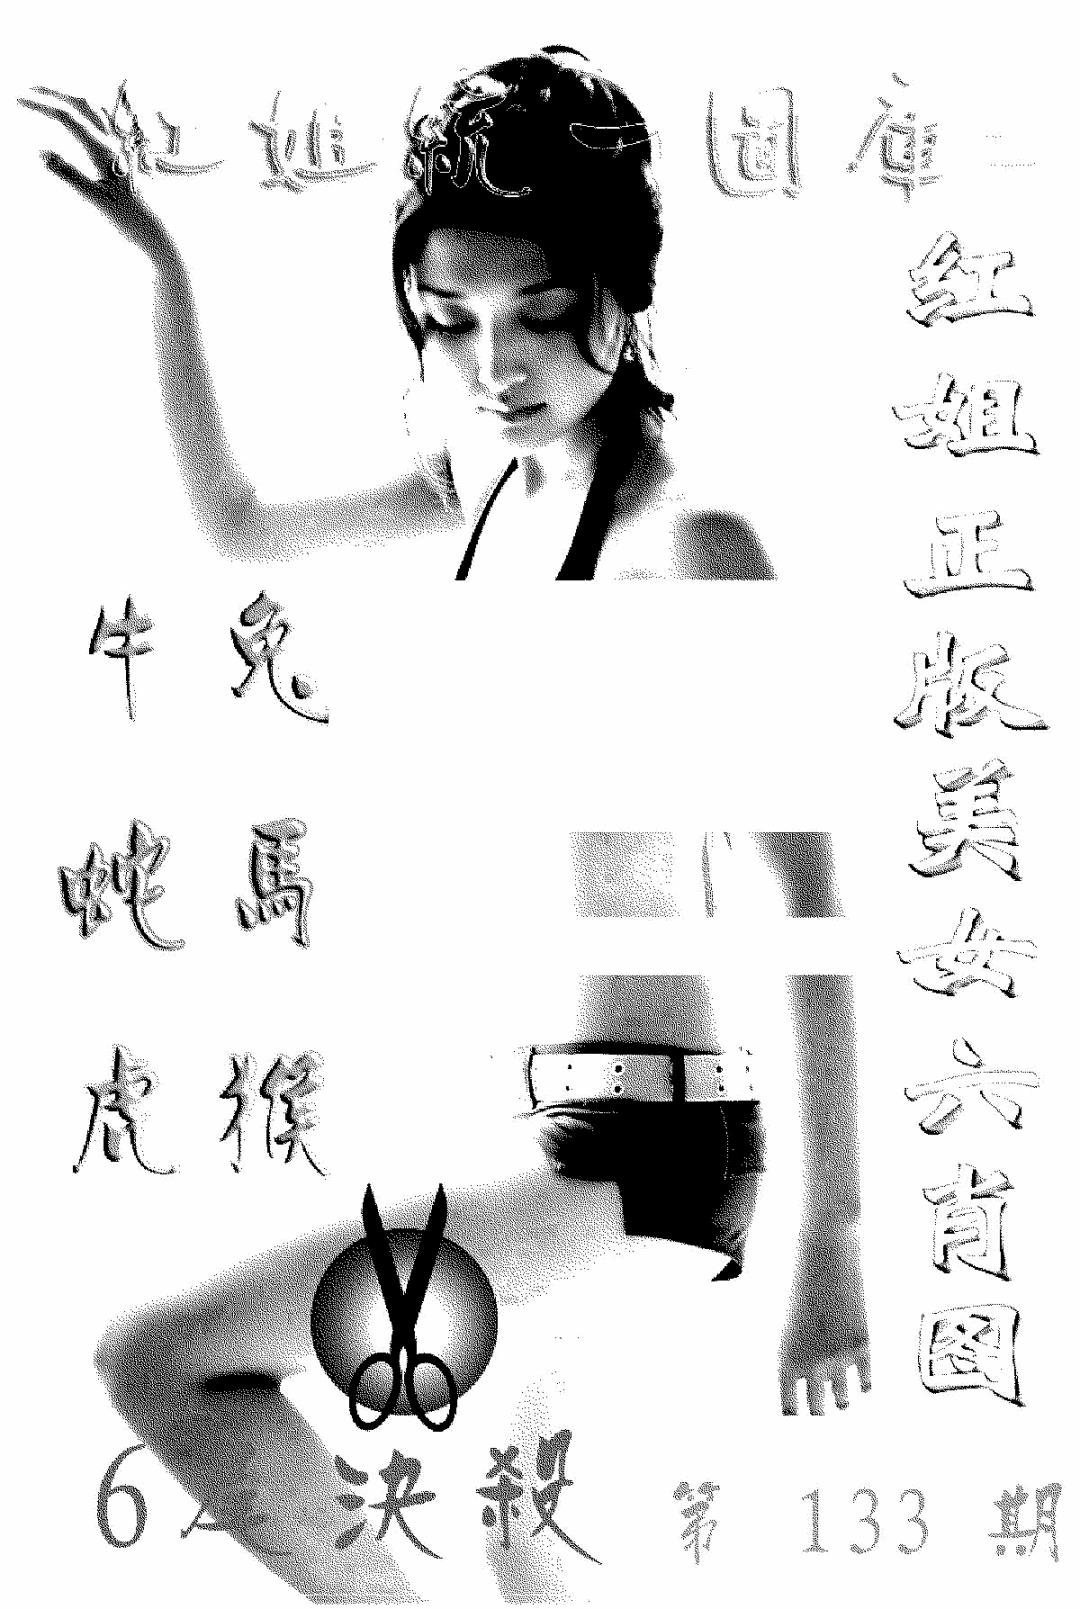 紅姐統一圖庫
紅姐正版美女六肖圖
牛 兔
蛇 馬
虎 猴
6 決殺
第 133 期